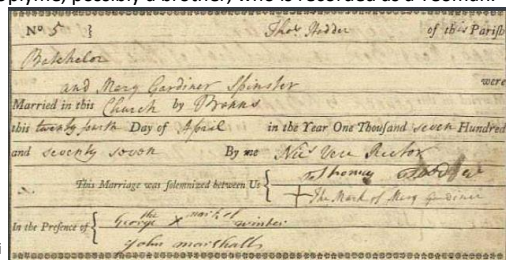 possibly a brother, who is recorded as a Yeoman.
No 5 } Thos Hodder of this Parish
Batchelor
and Mery Gardiner Spinster were
Married in this Church by Banns
this twenty fourth Day of April in the Year One Thousand seven Hundred
and seventy seven By me Nics Vere Rector
This Marriage was solemnized between Us { Thomas Hodder
The Mark of Mery Gardiner
In the Presence of { George the X mark of winter
John marshall